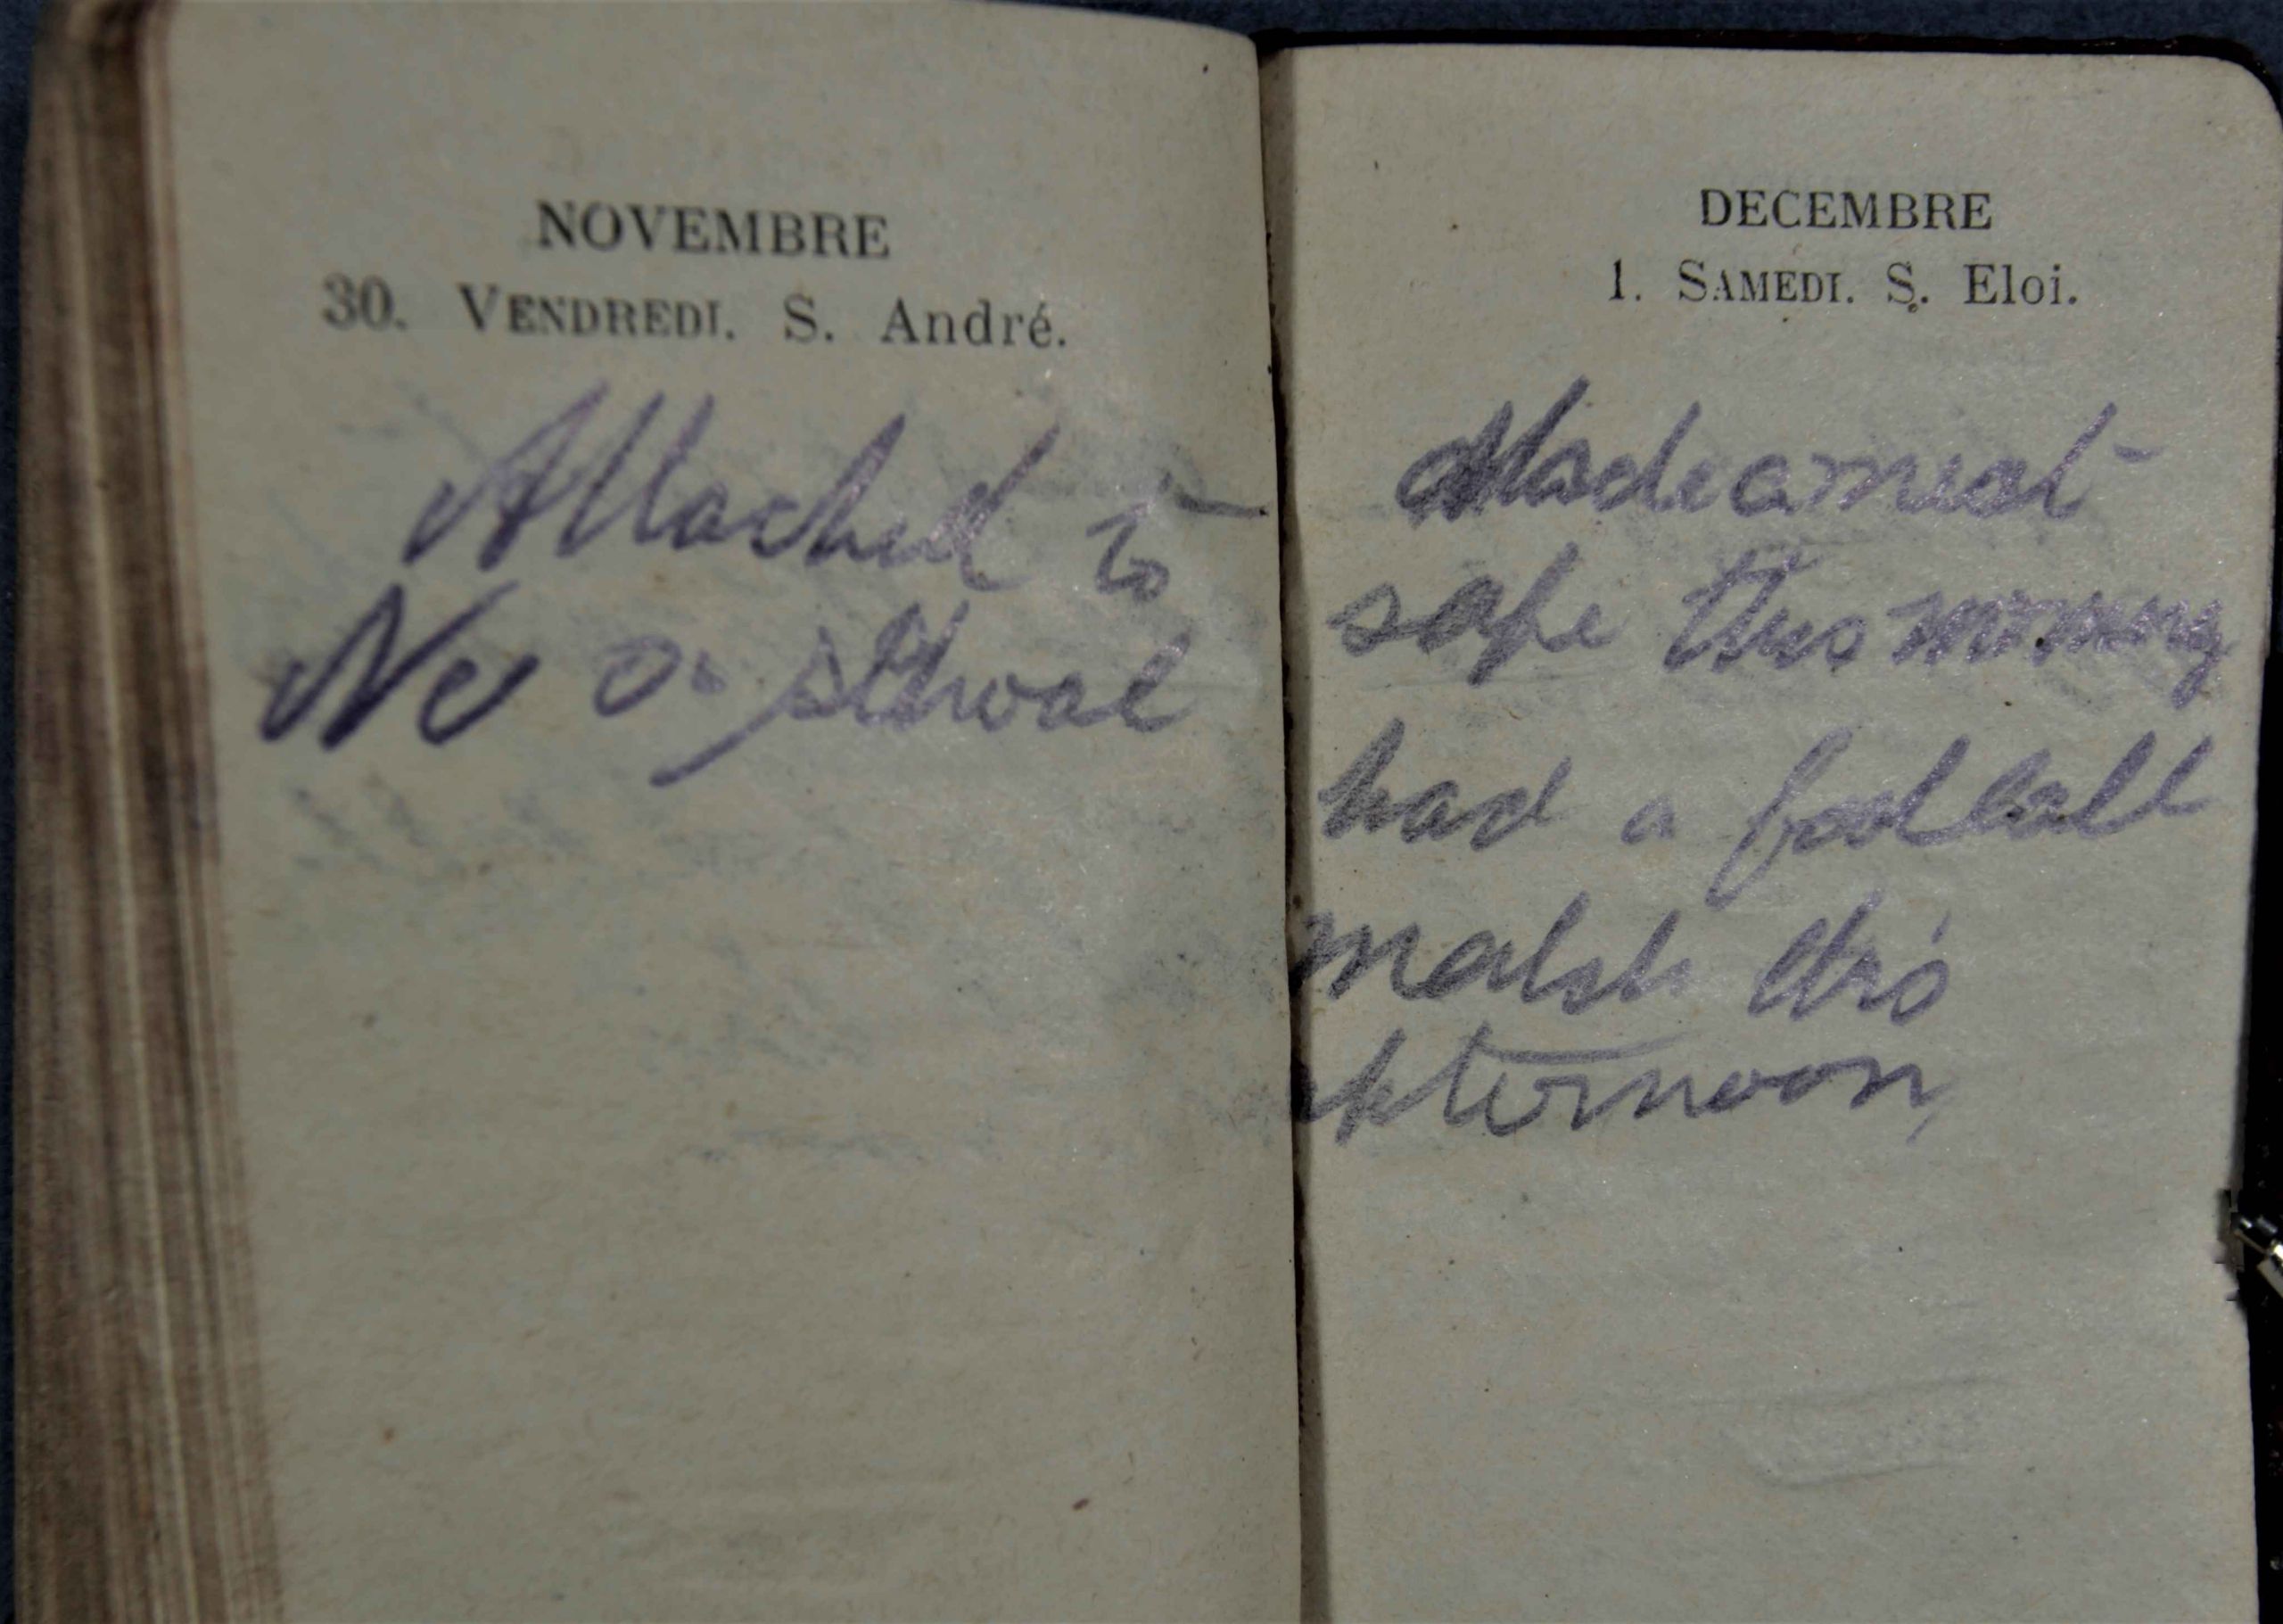 NOVEMBRE
30. VENDREDI. S. André.
Attached to
School
DECEMBRE
1. SAMEDI. S. Eloi.
Made a meat
safe this morning
had a football
match this
afternoon